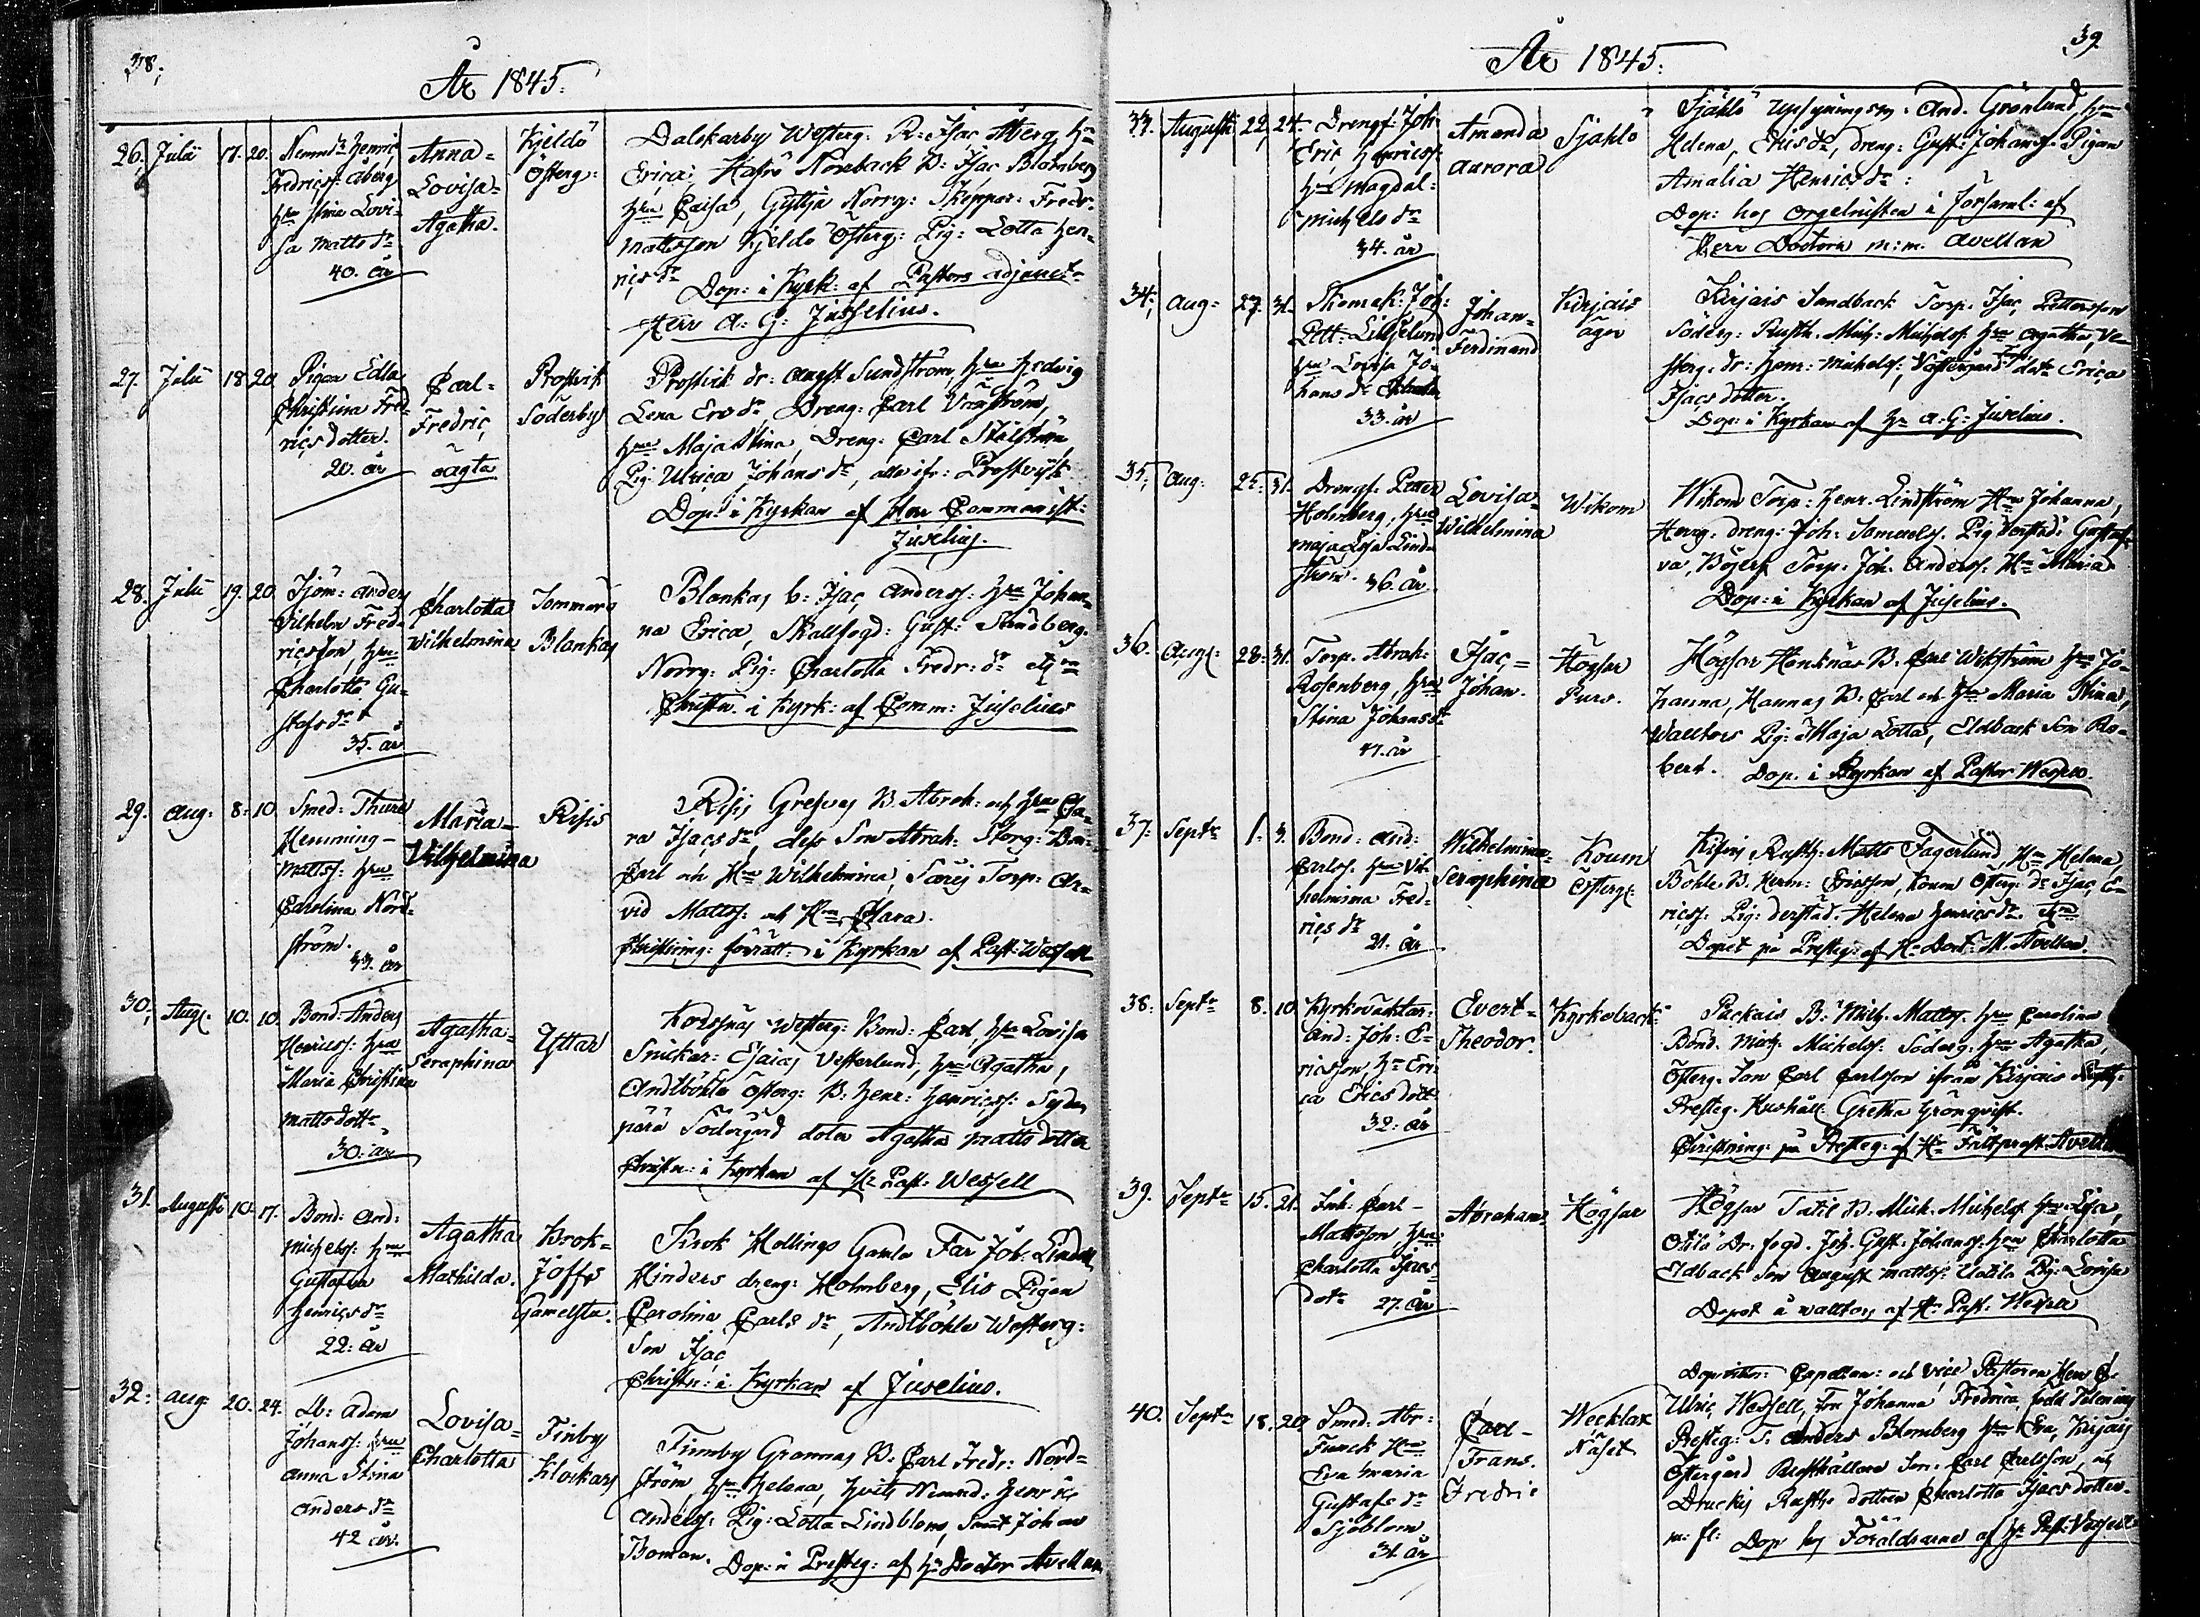 38.
År 1845.
26. Julii 17. 20.
Nemnd: Henric
Fredricss: Åberg
Hru Stina Lovi-
sa Matts dr
40. år
Anna-
Lovisa-
Agatha.
Kjeldö
Österg:
Dalskarby Westerg: R: Isac Åberg Hru
Erica; Hafrö Norrback B: Isac Blomberg
Hru Cajsa, Gyttja Norrg: Skeppar: Fredr:
Mattsson Kjeldö Österg: Pig: Lotta Hen-
rics dr
Dop: i Kyrk: af Pastors adjunct-
Herr A: G: Juselius.
27. Julii 18. 20.
Pigan Edla
Christina Fred-
rics dotter.
20. år
Carl-
Fredric,
oägta
Prostvik
Söderby
Prostvik dr: August Sundström, Hru Hedvig
Lena Ers dr Dreng: Carl
Hru Maja Stina, Dreng: Carl
Pig: Ulrica Johans dr, alla ifr: Prostvik
Dop: i Kyrkan af Herr Comminist:
Juselius.
28. Julii 19. 20.
Sjöm: Anders
Vilhelm Fred-
ricsson, Hru
Charlotta Gu-
stafs dr
35. år
Charlotta
Wilhelmina
Sommarö
Blankas
Blankas b: Isac Anderss: Hru Johan-
na Erica, Skallfogd: Gust: Sundberg.
Norrg: Pig: Charlotta Fredr: dr
Christn: i Kyrk: af Comm: Juselius
29. Aug: 8. 10.
Smed: Thure
Hemming-
Mattss: Hru
Carolina Nord-
ström.
33. år
Maria-
Vilhelmina
Risis
Risis Grefvas B. Abrah: och Hru Cla-
ra Isacs dr, dess Son Abrah: Storg: Bon:
Carl och Hru Wilhelmina, Torp: Ar-
vid Mattss: och Hru Clara.
Christning: förrätt: i Kyrkan af Past: Wessell
30. Aug: 10. 10.
Bond: Anders
Henricss: Hru
Maria Christina
Mattsdott:
30. år
Agatha-
Seraphina
Yttar
Korsnäs Westerg: Bond: Carl, Hru Lovisa
Snickar: Esaias Vesterlund, Hru Agatha,
Andtböhle Österg: B: Henr: Henricss:
Södergård doter Agatha Mattsdotter
Christn: i Kyrkan af Hr Past: Wessell
31. Augusti 10. 17.
Bond: And:
Michelss: Hru
Gustafva
Henrics dr
22. år
Agatha
Mathilda.
Krok-
Joffs
Gamelsta.
Krok Mellings Gamla Far Joh:
Hinders dreng: Holmberg, Elis Pigan
Carolina Carls dr, Andtböhle Westerg:
Son Isac
Christn: i Kyrkan af Juselius.
32. Aug 20. 24.
Adam
Johanss: Hru
Anna Stina
Anders dr
42 år.
Lovisa-
Charlotta
Finby
Klockars
Finnby Grannas B: Carl Fredr: Nord-
ström, Hru Helena, Nemnd: Henric
Anderss: Pig: Lotta Lindblom, Samt Johan
Boman. Dop: i Prestg: af Hr Doctor Avellan.
39
År 1845.
33. Augusti 22. 24.
Drengs: Joh:
Eric Henricss:
Hru Magdal:
Michels dr
34. år
Amanda
Aurora
Sjählö
Sjählö Upsyningsm: And. Grönlund, Hru
Helena, Erics dr, dreng: Gust: Johanss: Pigan
Amalia Henrics dr:
Dop: hos Orgelnisten i Församl: af
Herr Doctorn m: m. Avellan
34. Aug: 27. 31.
Skomak: Joh:
Pett: Liljelund
Hru Lovisa Jo-
hans dr
33. år
Johan-
Ferdinand
Kirjais
ägor
Kirjais Sandback Torp. Isac Pettersson
Söderg: Rusth. Mich: Michelss: Hru Agatha, Ve-
sterg: dr: Herm: Michelss: Östergård dott: Erica
Isacs dotter.
Dop: i Kyrkan af Hr A: G: Juselius.
35. Aug: 25. 31.
Drengs: Petter
Holmberg, Hru
Maja Lisa Lind-
ström. 36. år.
Lovisa-
Wilhelmina
Wikom
Wikom Torp: Henr: Lindström Hru Johanna,
Herrg: dreng: Joh: Samuelss. Pig derstäd: Gustaf-
va, Torp: Joh. Anderss. Hru Maria
Dop: i Kyrkan af Juselius.
36. Aug: 28. 31.
Torp. Abrah:
Rosenberg, Hru
Stina Johans dr
41. år
Isac-
Johan.
Högsar
Purs.
Högsar Henknäs B. Carl Wikström Hru Jo-
hanna, Hannas B. Carl och Hru Maria Stina,
Walltors Pig: Maja Lotta, Eldback Son Ro-
bert. Dop. i Kyrkan af Pastor Wessell.
37. Septr 1. 3.
Bond: And:
Carlss. Hru Vil-
helmina Fred-
rics dr
21. år
Wilhelmina-
Seraphina
Koum
Österg:
Rusth: Matts Fagerlund, Hru Helena,
Böhle B. Herm: Ericsson, Koum Österg: dr Isac E-
ricss: Pig: derstäd. Helena Henrics dr.
Dopet på Presteg: af Hr Doct: M. Avellan.
38. Septr 8. 10.
Kyrkovaktar:
And: Joh: E-
ricsson, Hr Eri-
ca Erics dott:
32. år
Evert-
Theodor.
Kyrkoback:
Packais B: Mich: Matts: Hru Carolina
Bond. Mich: Michelss: Söderg: Hru Agatha,
Österg. Son Carl Carlsson ifrån Kirjais
Presteg. Hushåll. Gretha Grönqvist.
Christning: på Presteg: af Hr Fältprost: Avellan
39. Septr 15. 21.
Carl-
Mattsson Hru
Charlotta Isacs-
dotr 27. år
Abraham.
Högsar
Högsar Tatil B. Mich. Michelss. Hru Lisa,
Otila Dr: fogd. Joh. Gust: Johanss. Hru Charlotta
Eldback Son August Mattss: Utila Pig: Lovisa
Dopet å Walltors af Hr Past. Wessell
40. Septr 18. 20
Smed: Abr:
Funck Hru
Eva Maria
Gustafs dr
Sjöblom
31. år
Carl-
Frans.
Fredric
Wecklax
Näset
Dopvittn: Capellan: och vice Pastoren Herr C.
Ulric Wessell, Fru Johanna Fredrica, född
Presteg: T. Anders Blomberg Hru Eva, Kirjais
Östergård Rusthållare Son: Carl Carlsson, och
Druckis Rusth: dottren Charlotta Isacsdotter.
m: fl: Dop hos Föräldrarne af Hr Past: Wessell